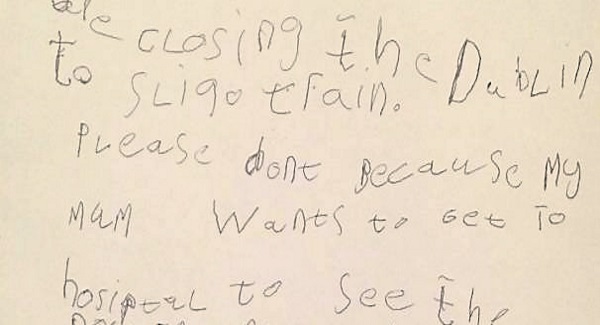 are closing the Dublin
to Sligo train.
Please dont Because My
MaM Wants to Get To
hosiptal to See the